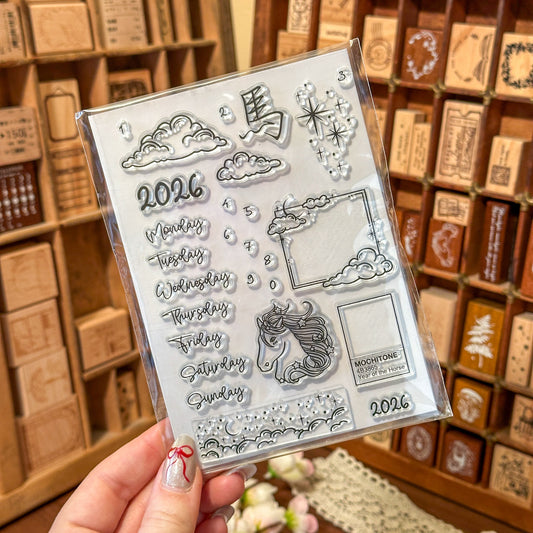 1
2
3
馬
2026
Monday
Tuesday
Wednesday
Thursday
Friday
Saturday
Sunday
4
5
6
7
8
9
0
MOCHITONE
Year of the Horse
2026